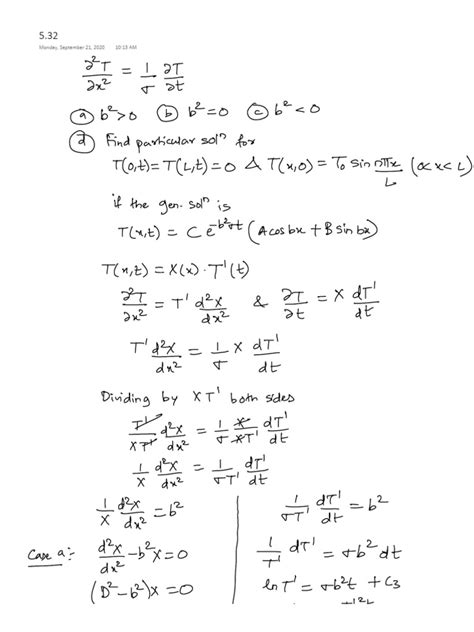 5.32
Monday, September 21, 2020 10:13 AM
∂²T/∂x² = 1/σ ∂T/∂t
ⓐ b²>0 ⓑ b²=0 ⓒ b²<0
ⓓ Find particular solⁿ for
T(0,t)=T(L,t)=0 & T(x,0)=T₀ sin nπx/L (0<x<L)
if the gen. solⁿ is
T(x,t) = C e^(-b²σt) (A cos bx + B sin bx)
T(x,t) = X(x) · T'(t)
∂²T/∂x² = T' d²X/dx² & ∂T/∂t = X dT'/dt
T' d²X/dx² = 1/σ X dT'/dt
Dividing by XT' both sides
T'/XT' d²X/dx² = 1/σ X/XT' dT'/dt
1/X d²X/dx² = 1/σT' dT'/dt
1/X d²X/dx² = b²
Case a:- d²X/dx² - b²X = 0
(D² - b²)X = 0
1/σT' dT'/dt = b²
1/T' dT' = σb² dt
ln T' = σb²t + C₃